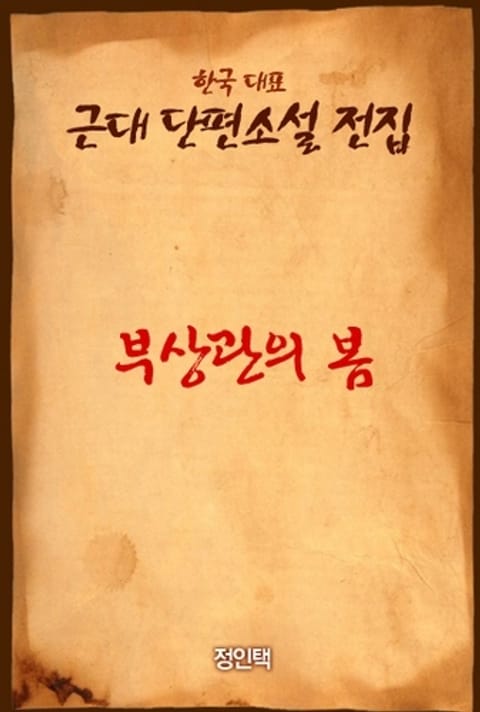 한국 대표
근대 단편소설 전집
부상관의 봄
정인택